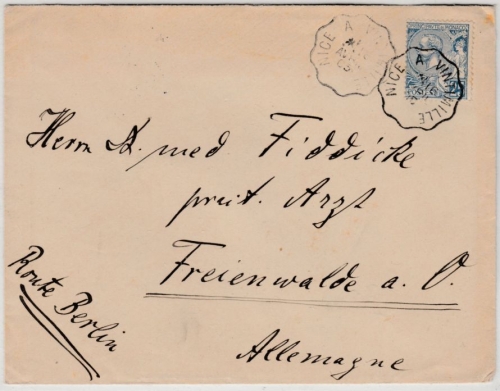 NICE A VINTIMILLE
NICE A VINTIMILLE
Herrn Dr. med Fiddicke
prakt. Arzt
Freienwalde a. O.
Allemagne
Route Berlin